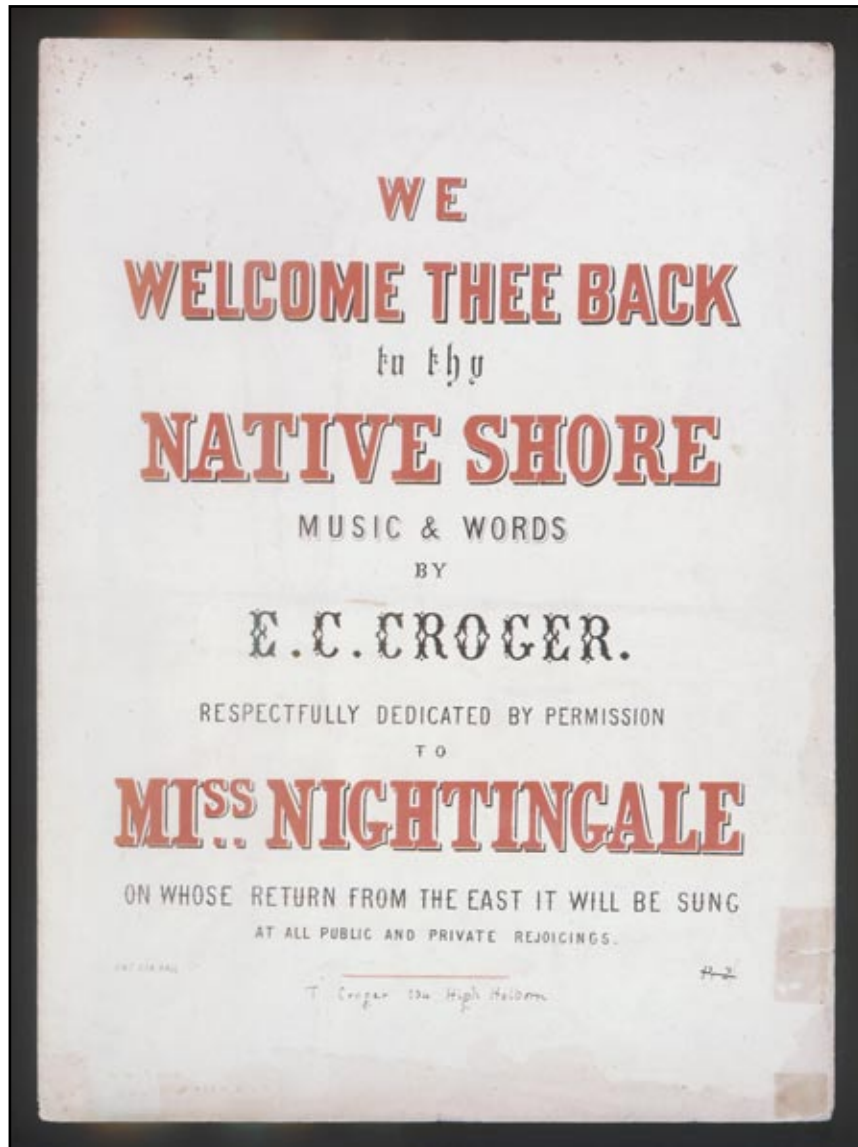 WE
WELCOME THEE BACK
to thy
NATIVE SHORE
MUSIC & WORDS
BY
E. C. CROGER.
RESPECTFULLY DEDICATED BY PERMISSION
TO
MISS NIGHTINGALE
ON WHOSE RETURN FROM THE EAST IT WILL BE SUNG
AT ALL PUBLIC AND PRIVATE REJOICINGS.
T Croger High Holborn